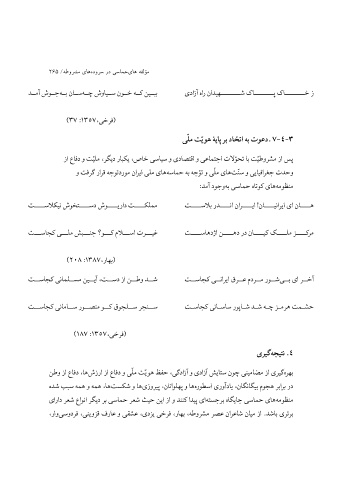 مؤلفه های‌حماسی در سروده‌های مشروطه / ۲۶۵
ز خـــاک پـــاک شـــهیدان راه آزادی ببین که خون سیاوش چه‌سان به‌جوش آمد
(فرخی،۱۳۵۷: ۳۷)
۳-۴-۷ .دعوت به اتحاد بر پایۀ هویّت ملّی
پس از مشروطیّت با تحوّلات اجتماعی و اقتصادی و سیاسی خاص، یکبار دیگر، ملیّت و دفاع از
وحدت جغرافیایی و سنّت‌های ملّی و توّجه به حماسه‌های ملی ایران موردتوجه قرار گرفت و
منظومه‌های کوتاه حماسی به‌وجود آمد:
هــان ای ایرانیــان! ایــران انــدر بلاســت مملکــت داریــوش دســتخوش نیکلاســت
مرکــز ملــک کیــان در دهــن اژدهاســت غیــرت اســلام کــو؟ جنــبش ملــی کجاســت
(بهار،۱۳۸۷: ۲۰۸)
آخــر ای بی‌شــور مــردم عــرق ایرانــی کجاســت شــد وطن از دســت، آیــین مســلمانی کجاســت
حشمت هرمز چه شد شاپور ساسانی کجاست سنجر سلجوق کو منصور سامانی کجاست
(فرخی،۱۳۵۷: ۱۸۷)
۴. نتیجه‌گیری
بهره‌گیری از مضامینی چون ستایش آزادی و آزادگی، حفظ هویّت ملّی و دفاع از ارزش‌ها، دفاع از وطن
در برابر هجوم بیگانگان، یادآوری اسطوره‌ها و پهلوانان، پیروزی‌ها و شکست‌ها، همه و همه سبب شده
منظومه‌های حماسی جایگاه برجسته‌ای پیدا کنند و از این حیث شعر حماسی بر دیگر انواع شعر دارای
برتری باشد. از میان شاعران عصر مشروطه، بهار، فرخی یزدی، عشقی و عارف قزوینی، فردوسی‌وار،